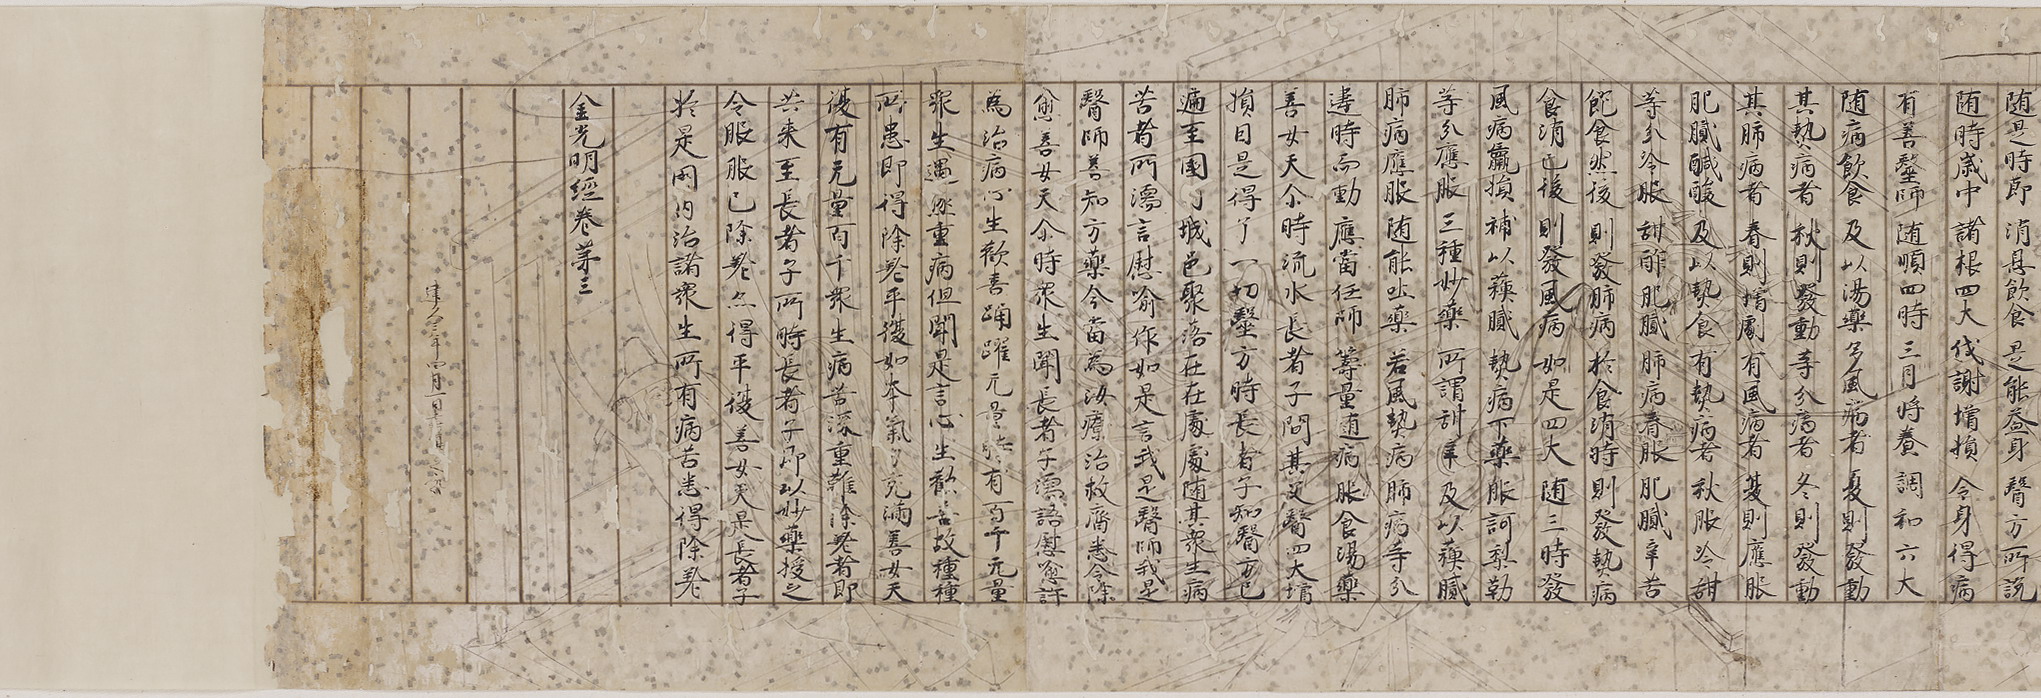 随是時節 消息飲食 是能益身 醫方所説
随時歳中 諸根四大 代謝増損 令身得病
有善醫師 随順四時 三月将養 調和六大
随病飲食 及以湯藥 多風病者 夏則發動
其熱病者 秋則發動 等分病者 冬則發動
其肺病者 春則増劇 有風病者 夏則應服
肥膩醎酸 及以熱食 有熱病者 秋服冷甜
等分冬服 甜酢肥膩 肺病春服 肥膩辛苦
飽食然後 則發肺病 於食消時 則發熱病
食消已後 則發風病 如是四大 随三時發
風病羸損 補以蘓膩 熱病下藥 服訶梨勒
等分應服 三種妙藥 所謂甜辛 及以蘓膩
肺病應服 随能吐藥 若風熱病 肺病等分
違時而動 應當任師 籌量随病 服食湯藥
善女天尒時流水長者子問其父醫四大増
損因是得了一切醫方時長者子知醫方已
遍至國内城邑聚落在在處處随其衆生病
苦者所濡言慰喻作如是言我是醫師我是
醫師善知方藥今當為汝療治救濟悉令除
愈善女天尒時衆生聞長者子濡語慰喻許
為治病心生歡喜踊躍无量時有百千无量
衆生遇極重病但聞是言心生歡喜故種種
所患即得除差平復如本氣力充滿善女天
復有无量百千衆生病苦深重難除差者即
共来至長者子所時長者子即以妙藥授之
令服服已除差亦得平復善女天是長者子
於是國内治諸衆生所有病苦悉得除差
金光明經卷第三
建久三年四月一日